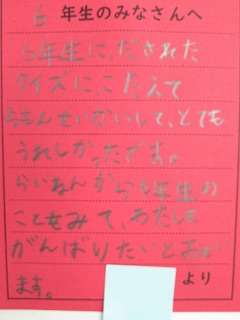 6 年生のみなさんへ
6年生に、だされた
クイズにこたえて
ぜんもんせいかいして、とても
うれしかったです。
らいねんずっと6年生の
こともみて、わたしも
がんばりたいとおもい
ます。 より